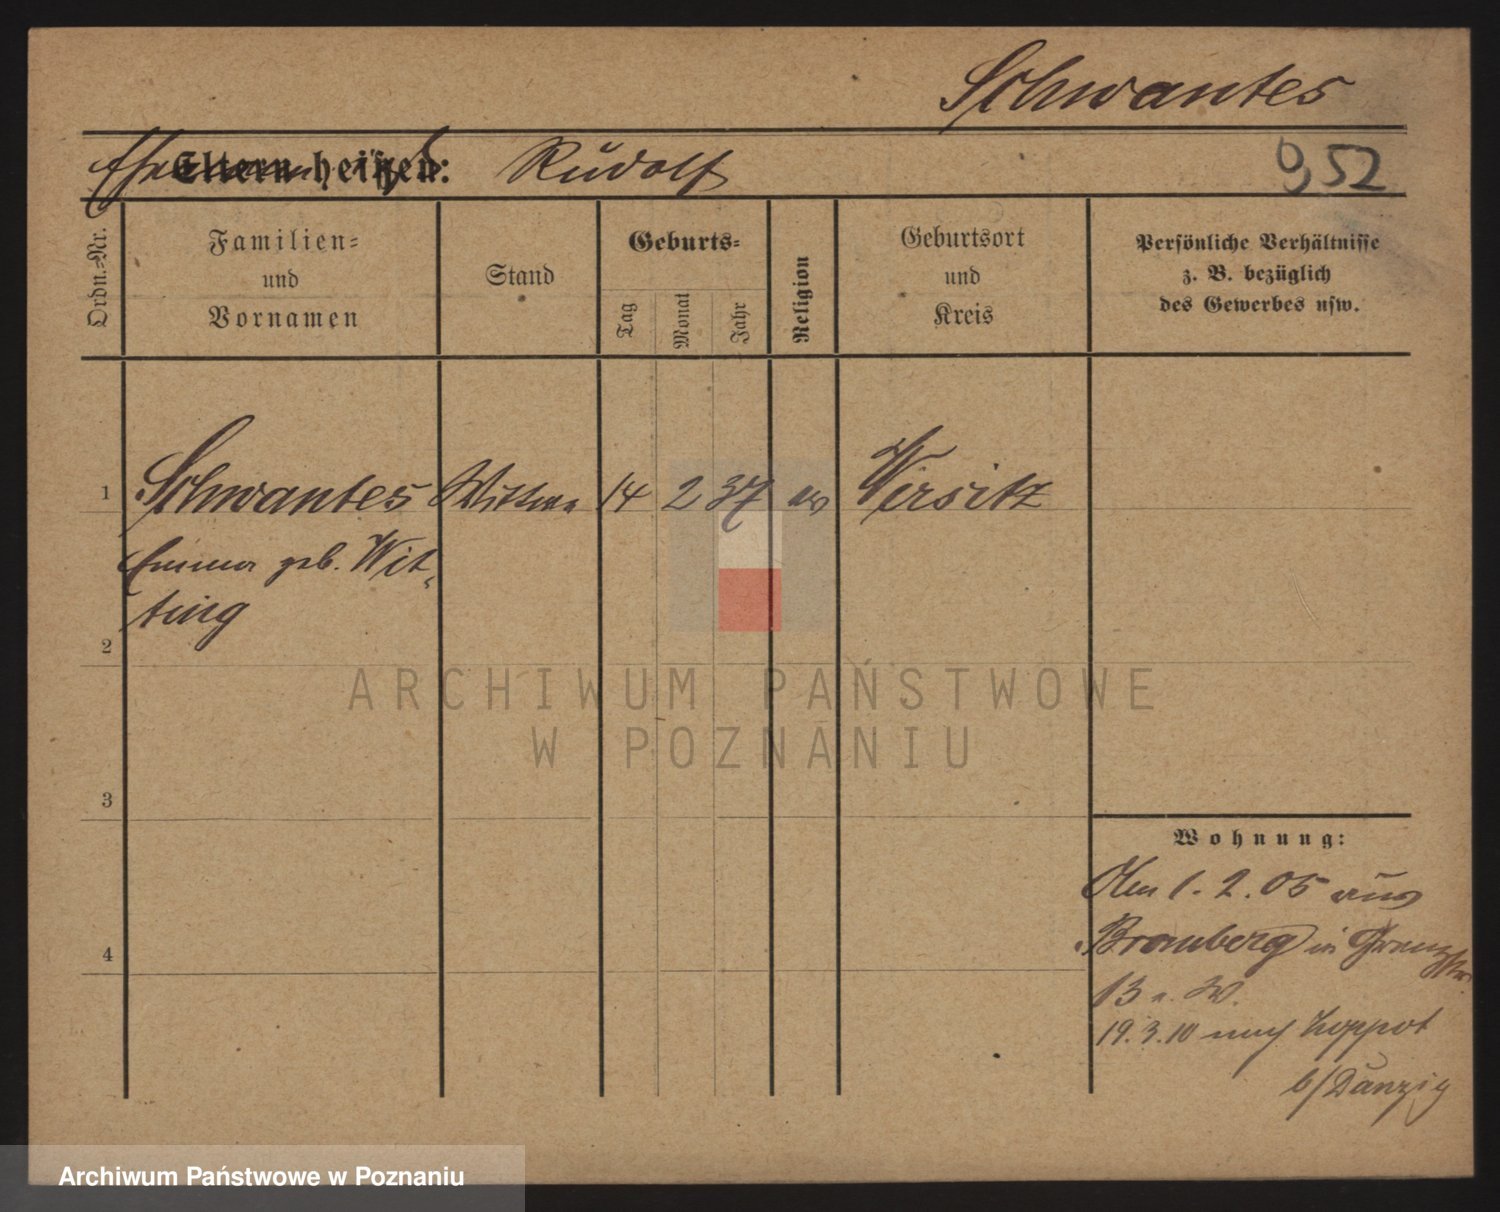 Schwantes
Eltern heißen: Rudolf
952
Ordn.-Nr.
Familien-
und
Vornamen
Stand
Geburts-
Tag
Monat
Jahr
Religion
Geburtsort
und
Kreis
Persönliche Verhältnisse
z. B. bezüglich
des Gewerbes usw.
1 Schwantes Wittwe 14 2 37 ev Wirsitz
Emma geb. Wit-
ting
2
3
4
Wohnung:
Am 1. 2. 05 aus
Bromberg in
13 a. W.
19. 3. 10 nach Zoppot
b/Danzig
ARCHIWUM PAŃSTWOWE
W POZNANIU
Archiwum Państwowe w Poznaniu